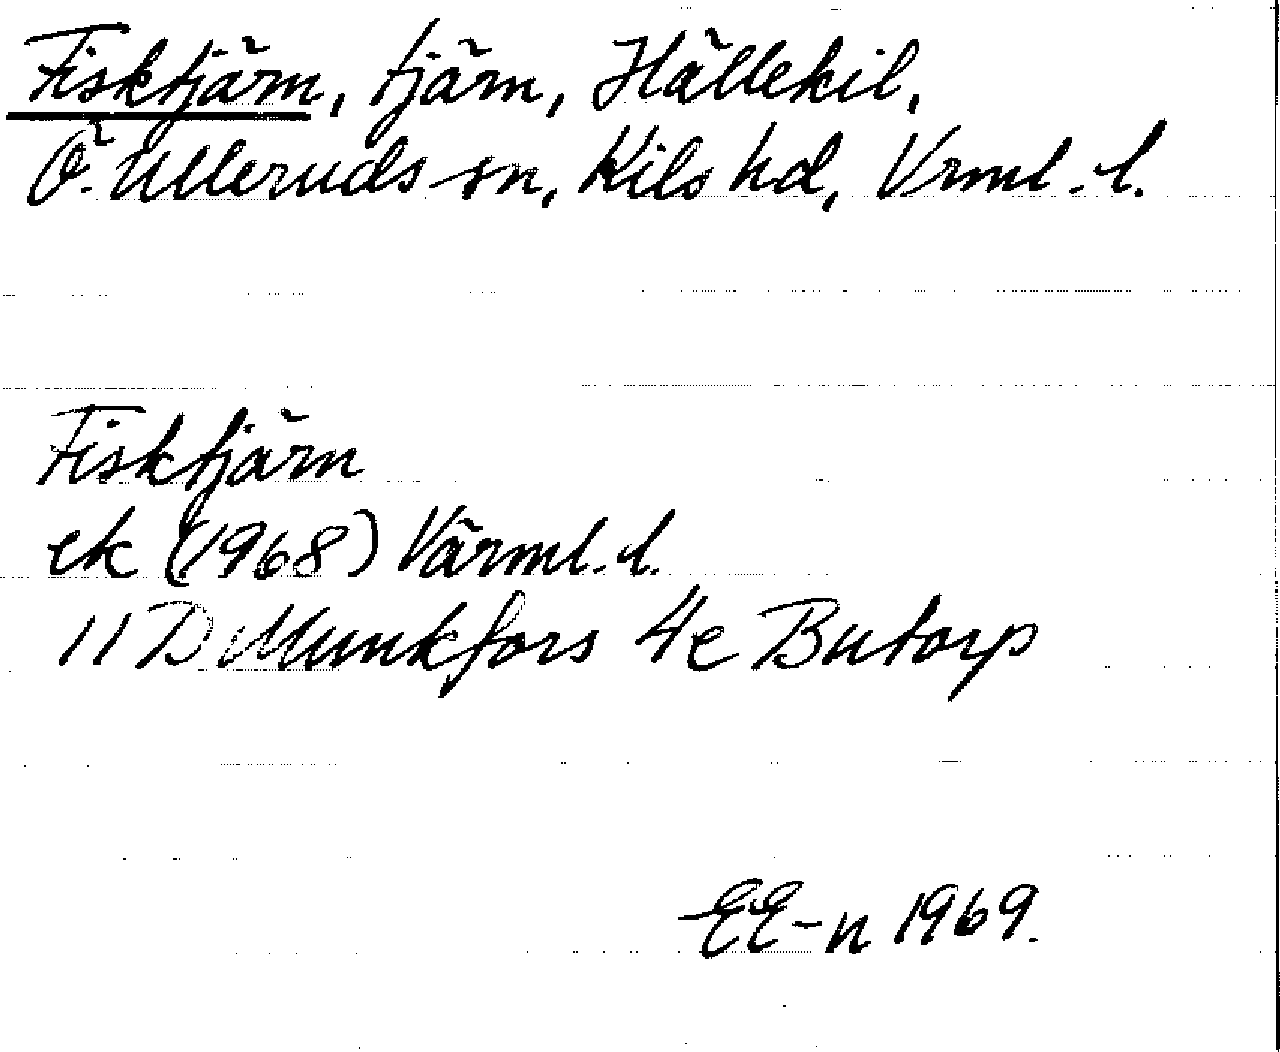 Fisktjärn, tjärn, Hällekil,
Ö. Ulleruds sn, Kils hd, Vrml. l.
Fisktjärn
ek (1968) Värml. l.
11 D Munkfors 4e Butorp
EE-n 1969.